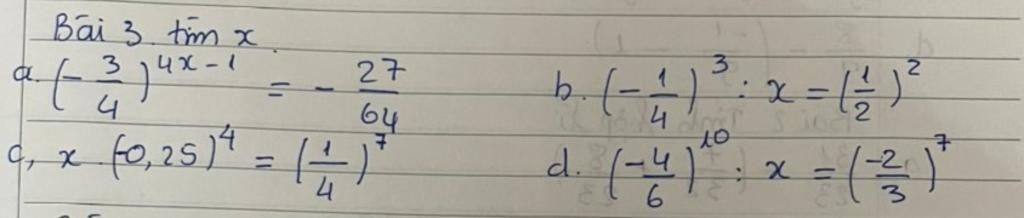 Bài 3. tìm x.
a. (-3/4)^{4x-1} = -27/64 b. (-1/4)^3 : x = (1/2)^2
c, x.(-0,25)^4 = (1/4)^7 d. (-4/6)^{10} : x = (-2/3)^7